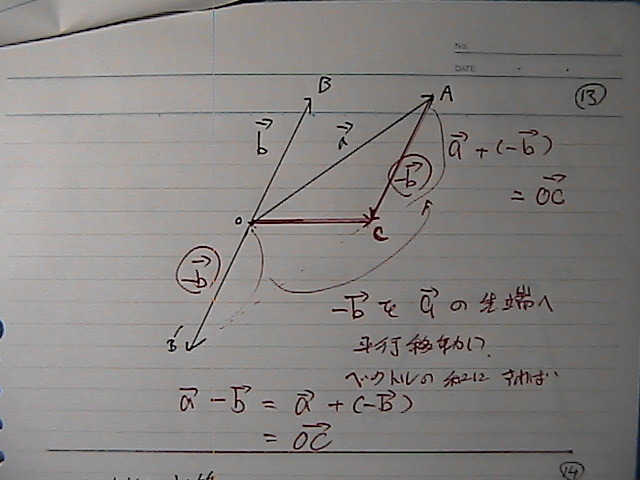 No.
DATE
⑬
B
A
b→
a→
a→ + (-b→)
-b→
= OC→
O
C
-b→
B'
-b→ を a→ の先端へ
平行移動し
ベクトルの和に すれば
a→ - b→ = a→ + (-b→)
= OC→
⑭